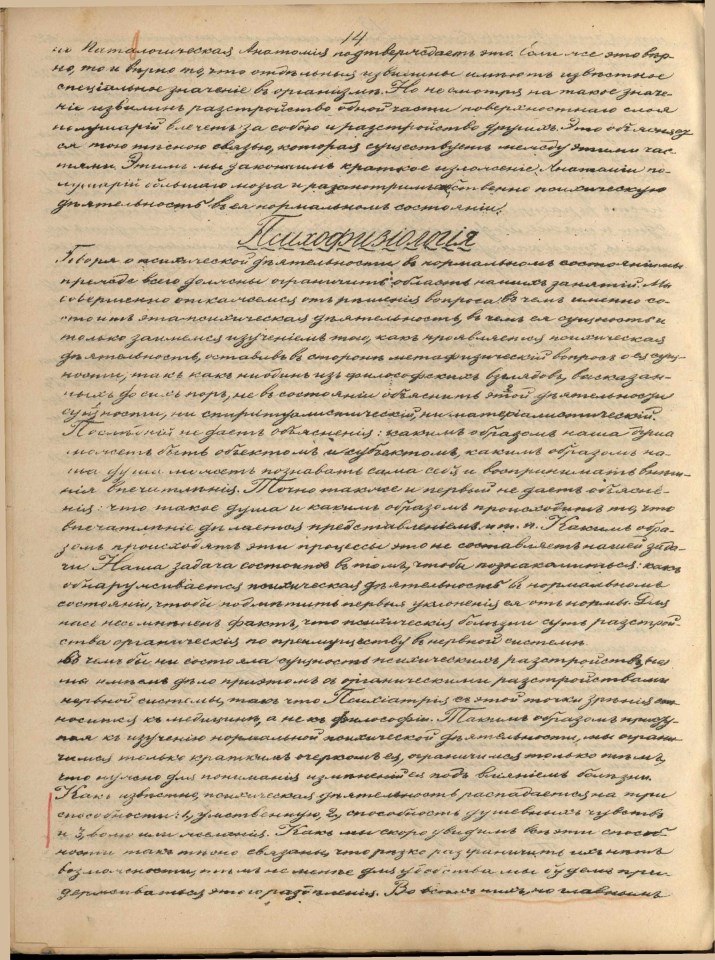 14
и Патологическая Анатомія подтверждаетъ это. Если же это вѣр-
но, то и вѣрно то, что отдѣльныя извилины имѣютъ извѣстное
спеціальное значеніе въ организмѣ. Но не смотря на такое значе-
ніе извилинъ разстройство одной части поверхностнаго слоя
полушарій влечетъ за собою и разстройство другихъ. Это объясняет
ся тою тѣсною связью, которая существуетъ между этими час-
тями. Этимъ мы закончимъ краткое изложеніе Анатоміи по-
лушарій большаго мозга и разсмотримъ собственно психическую
дѣятельность въ ея нормальномъ состояніи.
Психофизіологія
Говоря о психической дѣятельности въ нормальномъ состояніи мы
прежде всего должны ограничить область нашихъ занятій. Мы
совершенно откажемся отъ рѣшенія вопроса: въ чемъ именно со-
стоитъ эта психическая дѣятельность, въ чемъ ея сущность и
только займемся изученіемъ того, какъ проявляется психическая
дѣятельность, оставивъ въ сторонѣ метафизическій вопросъ о ея сущ-
ности, такъ какъ ни одинъ изъ философскихъ взглядовъ, высказан-
ныхъ до сихъ поръ, не въ состояніи объяснить этой дѣятельности
сущности, ни спиритуалистическій, ни матеріалистическій.
Послѣдній не даетъ объясненія: какимъ образомъ наша душа
можетъ быть объектомъ и субъектомъ, какимъ образомъ на-
ша душа можетъ познавать сама себя и воспринимать внѣш-
нія впечатлѣнія. Точно также и первый не даетъ объясне-
нія: что такое душа и какимъ образомъ происходитъ то, что
впечатлѣніе дѣлается представленіемъ и т. п. Какимъ обра-
зомъ происходятъ эти процессы это не составляетъ нашей зада-
чи. Наша задача состоитъ въ томъ, чтобы познакомиться: какъ
обнаруживается психическая дѣятельность въ нормальномъ
состояніи, чтобы подмѣтить первыя уклоненія ея отъ нормы. Для
насъ несомнѣненъ фактъ, что психическія болѣзни суть разстрой-
ства органическія по преимуществу въ нервной системѣ.
Въ чемъ бы ни состояла сущность психическихъ разстройствъ, но
мы имѣемъ дѣло при этомъ съ органическими разстройствами
нервной системы, такъ что Психіатрія съ этой точки зрѣнія от-
носится къ медицинѣ, а не къ философіи. Такимъ образомъ присту-
пая къ изученію нормальной психической дѣятельности, мы ограни-
чимся только краткимъ очеркомъ ея, ограничимся только тѣмъ,
что нужно для пониманія измѣненій ея подъ вліяніемъ болѣзни.
Какъ извѣстно, психическая дѣятельность распадается на три
способности: 1, умственную, 2, способность душевныхъ чувствъ
и 3, волю или желанія. Какъ мы скоро увидимъ всѣ эти способ-
ности такъ тѣсно связаны, что рѣзко разграничить ихъ нѣтъ
возможности, тѣмъ не менѣе для удобства мы будемъ при-
держиваться этого раздѣленія. Во всѣхъ нихъ, но главнымъ